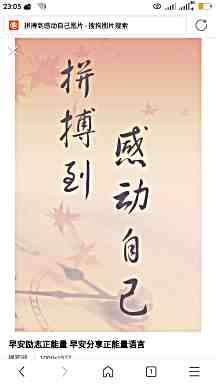 23:05
拼搏到感动自己图片 - 搜狗图片搜索
拼搏到
感动自己
早安励志正能量 早安分享正能量语言
1